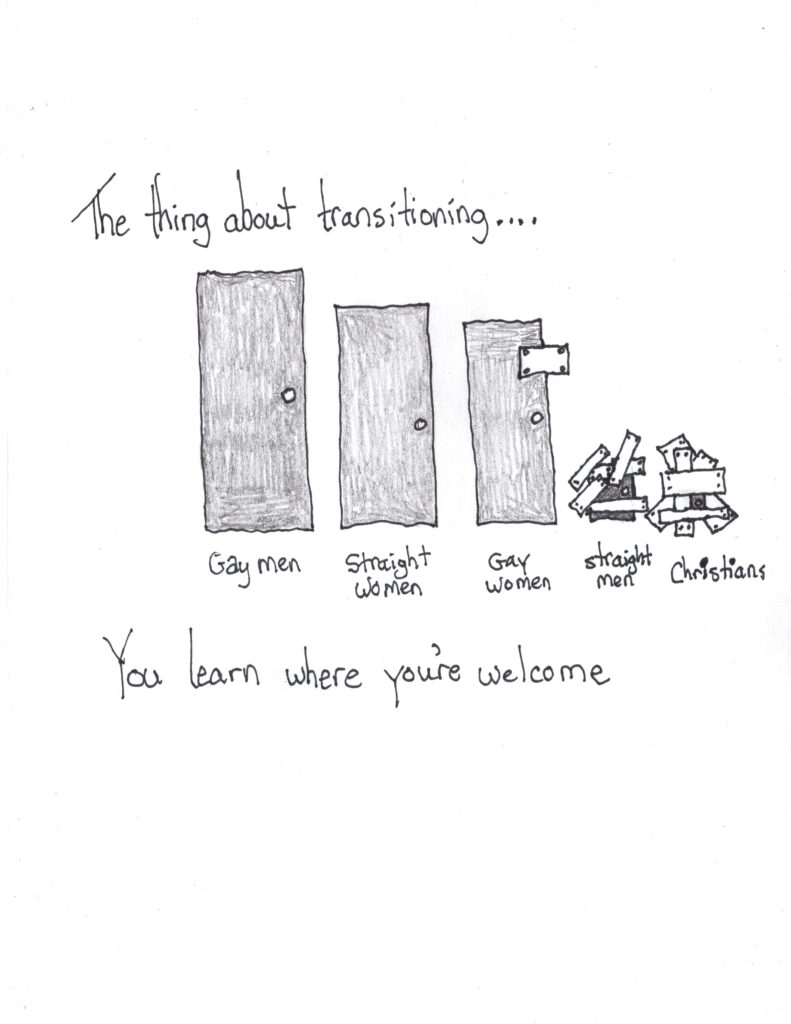 The thing about transitioning....
Gay men
Straight
Women
Gay
women
straight
men
Christians
You learn where you're welcome